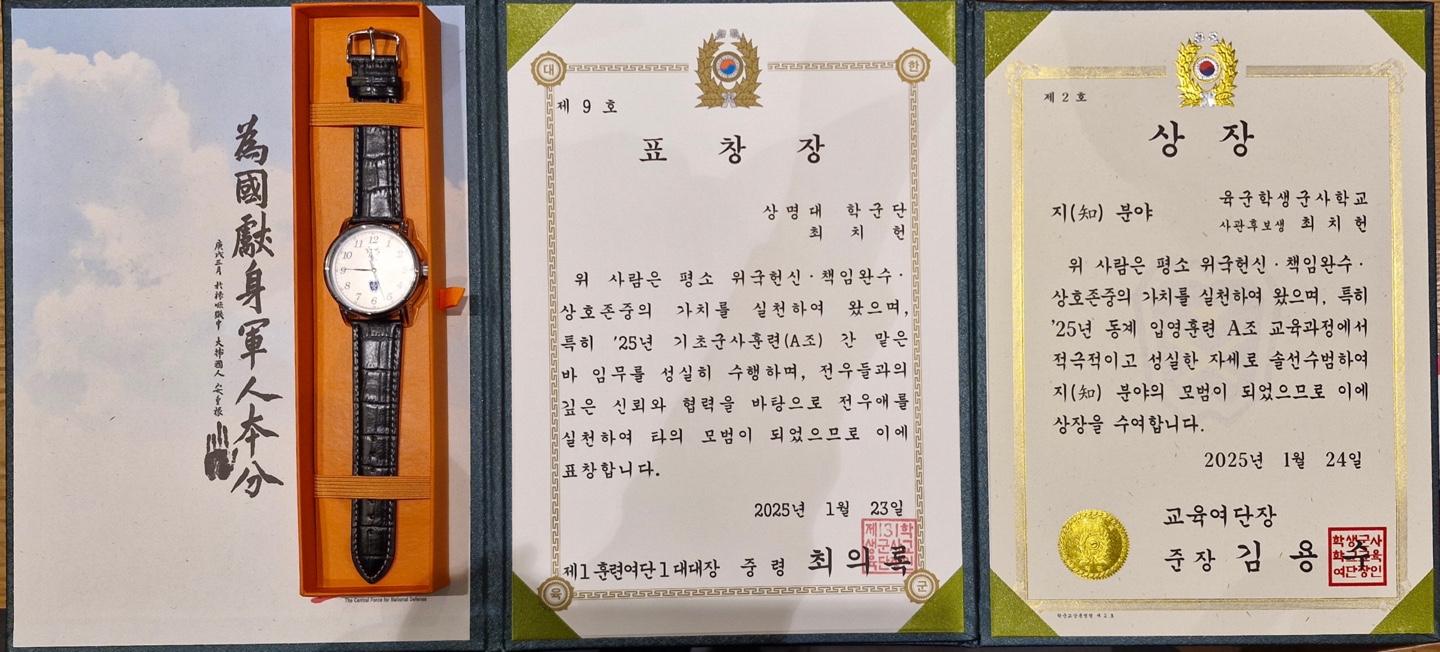 為國獻身軍人本分
庚戌三月 於旅順獄中 大韓國人 安重根
12
1
2
3
4
5
6
7
8
9
10
11
The Central Force for National Defense
대
한
제 9 호
표 창 장
상명대 학군단
최 치 헌
위 사람은 평소 위국헌신·책임완수·
상호존중의 가치를 실천하여 왔으며,
특히 '25년 기초군사훈련(A조) 간 맡은
바 임무를 성실히 수행하며, 전우들과의
깊은 신뢰와 협력을 바탕으로 전우애를
실천하여 타의 모범이 되었으므로 이에
표창합니다.
2025년 1월 23일
제1훈련여단1대대장 중령 최의록
육
군
제 2 호
상 장
지(知) 분야
육군학생군사학교
사관후보생 최치헌
위 사람은 평소 위국헌신·책임완수·
상호존중의 가치를 실천하여 왔으며, 특히
'25년 동계 입영훈련 A조 교육과정에서
적극적이고 성실한 자세로 솔선수범하여
지(知) 분야의 모범이 되었으므로 이에
상장을 수여합니다.
2025년 1월 24일
교육여단장
준장 김용수
학생군사
학교교육
여단장인